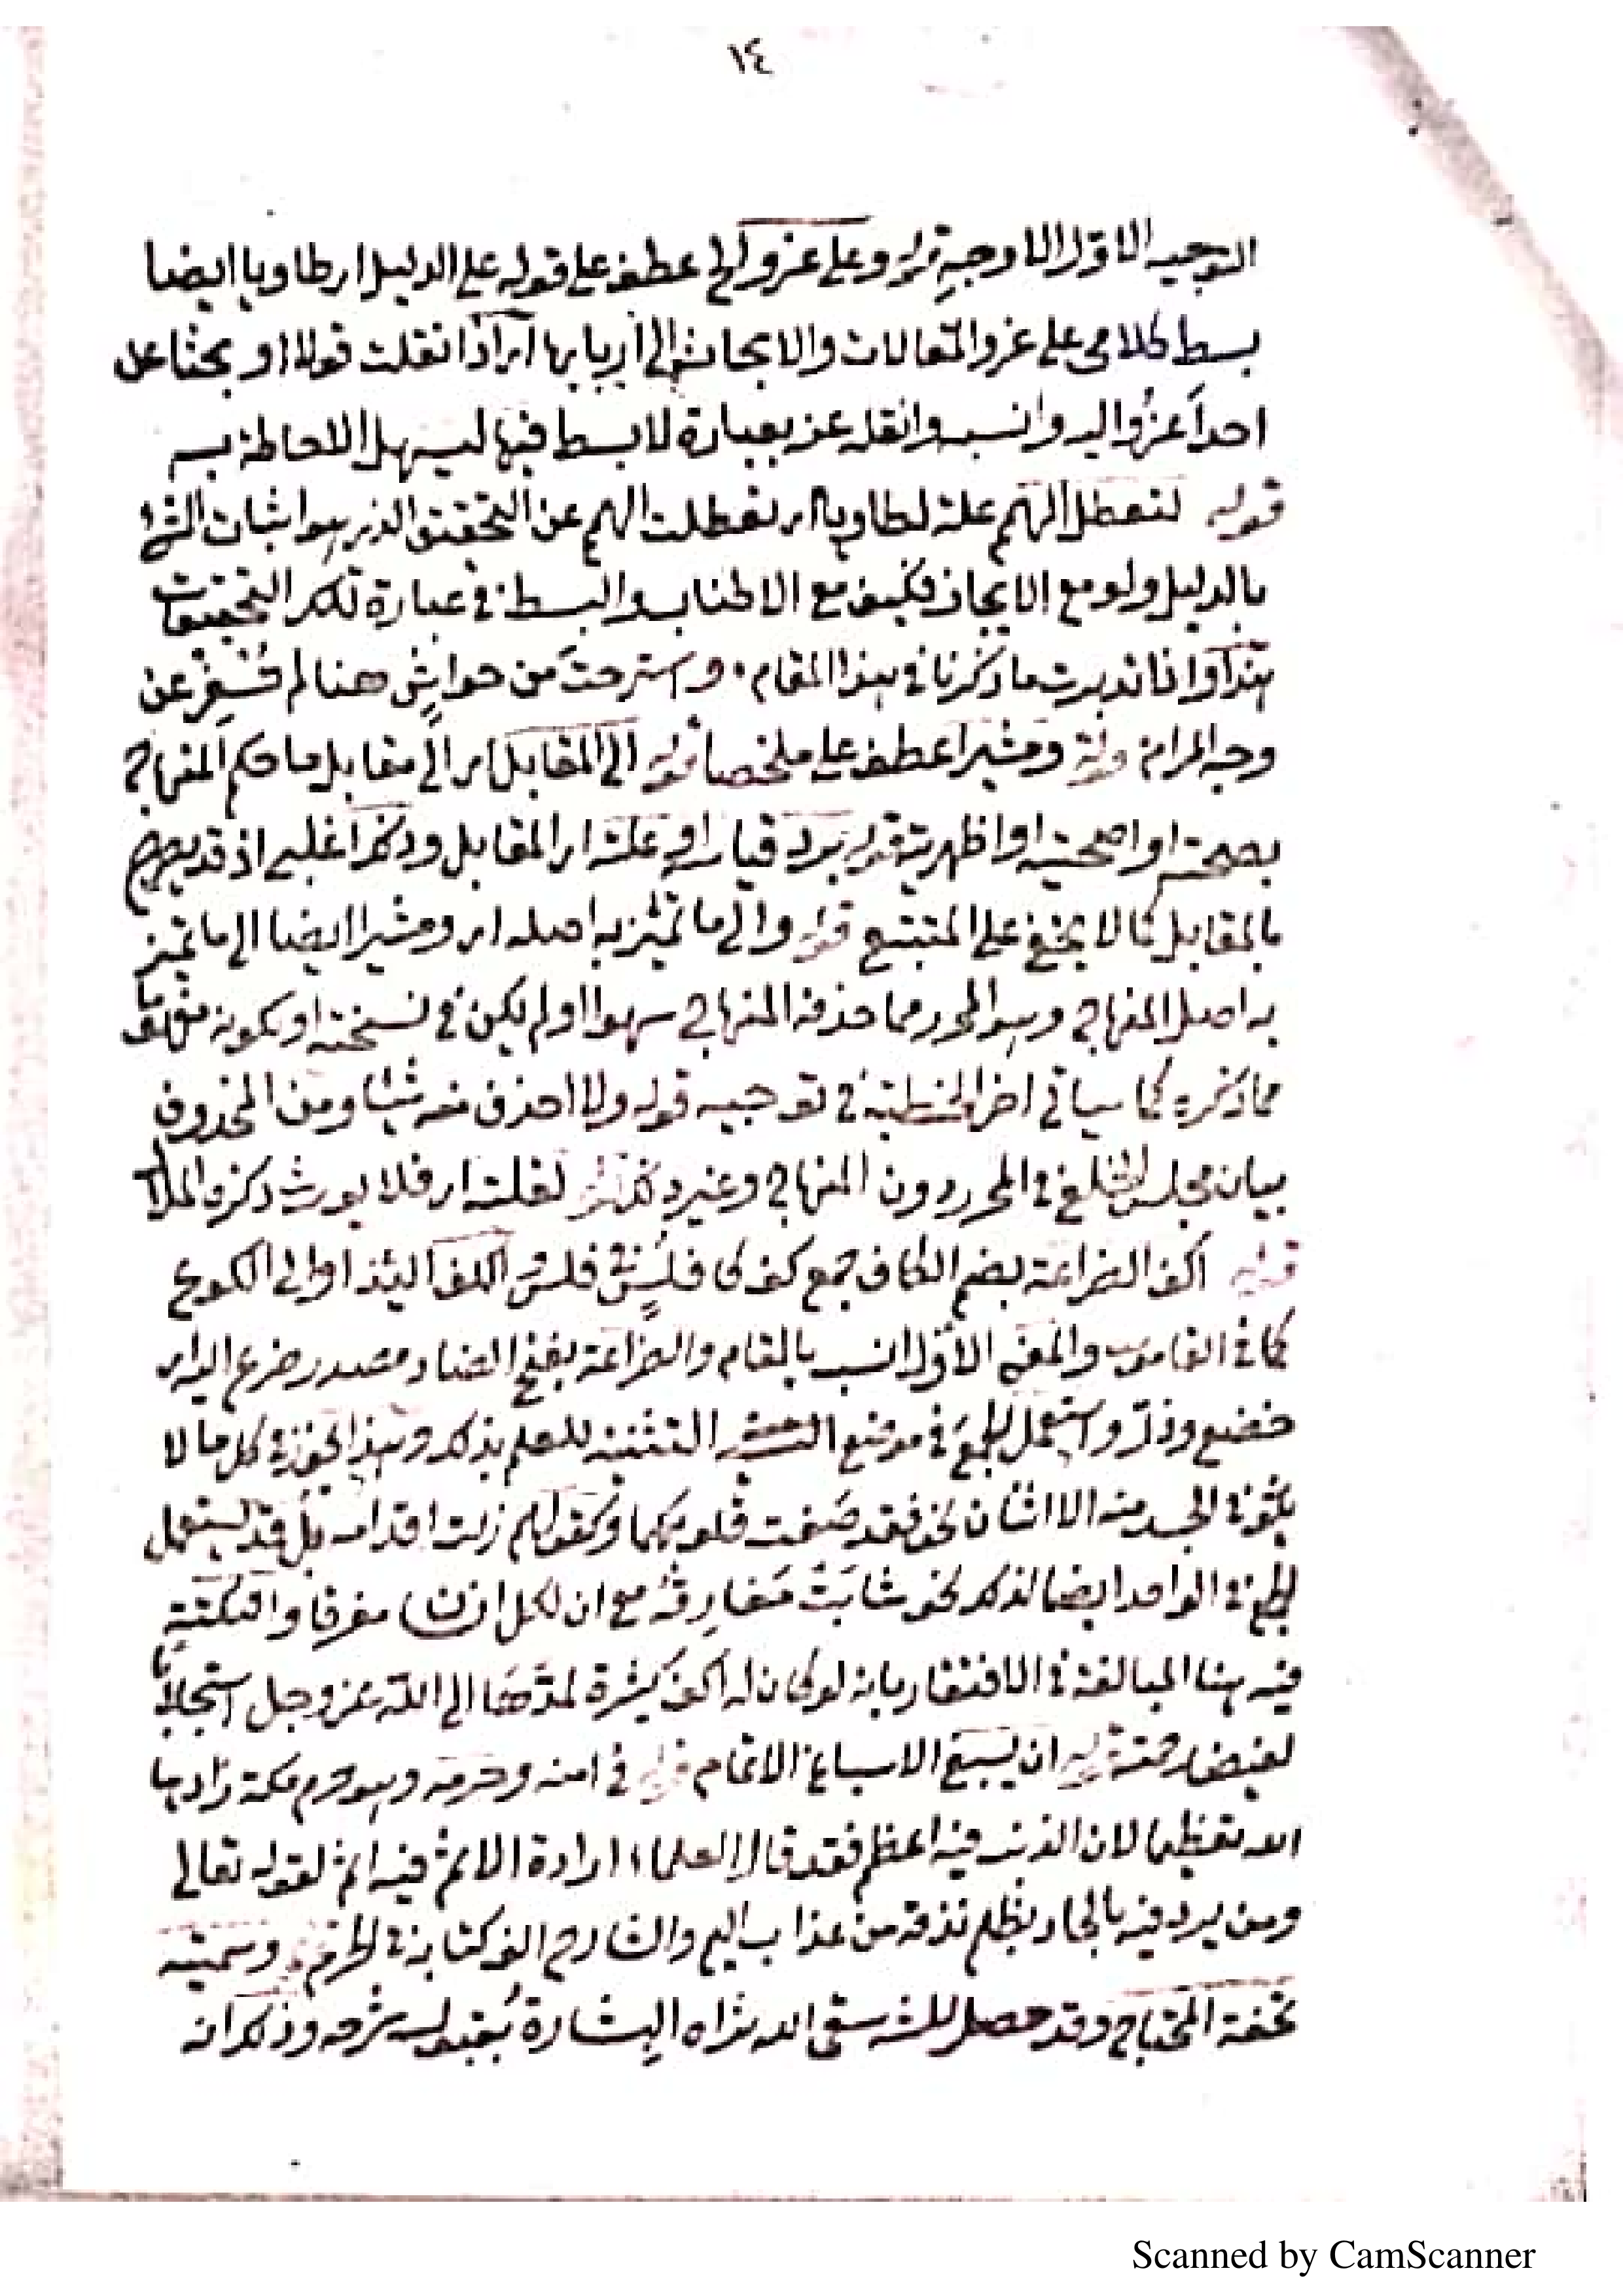 ١٤
التوجيه الاول الا وجيه قوله وعلى عزو الخ عطف على قوله على الدليل اي طاويا ايضا
بسط كلامي على عزو المقالات والابحاث الى اربابها اي اذا نقلت قولا او بحثا عن
احد أعزو اليه وانسبه وانقله عنه بعبارة لا بسط فيها ليسهل الاحاطة به
قوله لتعطل الهمم علة لطاويا اي تعطلت الهمم عن التحقيق الذي هو اثبات الشئ
بالدليل ولو مع الايجاز فكيف مع الاطناب والبسط في عبارة تلك التحقيقات
هذا واذا تدبرت ما ذكرنا في هذا المقام واسترحت من حواش هنا لم تسفر عن
وجه المرام قوله ومشيرا عطف على ملخصا قوله الى المقابل اي الى مقابل ما حكم المنهاج
بصحته او اصحيته او اظهريته قوله برد قياسه او علته اي المقابل وذكر اغلبي اذ قد يصرح
بالمقابل كما لا يخفى على المتتبع قوله والى ما تميز به اصله اي ومشيرا ايضا الى ما تميز
به اصل المنهاج وهو المحرر مما حذفه المنهاج سهوا او لم يكن في نسخته او لكونه
مما ذكره كما سيأتي اخر الخطبة في توجيه قوله ولا احذف منه شيئا ومن المحذوف
بيان مجلس الخلع في المحرر دون المنهاج وغير ذلك لقلته اي فلا يورث ذكره الملا
قوله أكف الضراعة بضم الكاف جمع كف كفلس فلوس الكف اليد او الى الكوع
كما في القاموس والمعنى الاول انسب بالمقام والضراعة بفتح الضاد مصدر ضرع اليه اي
خضع وذل واستعمل الجمع في موضع التثنية للعلم بذلك وهذا يجوز في كل ما لا
يكون في الجسد منه الا اثنان نحو فقد صغت قلوبكما وكقولهم زلت اقدامه بل قد يستعمل
الجمع في الواحد ايضا لذلك نحو شابت مفارقه مع ان لكل انسان مفرقا والنكتة
فيه هنا المبالغة في الافتقار بانه لو كان له أكف كثيرة لمدها الى الله عز وجل استجلابا
لفيض رحمته قوله ان يسبغ الاسباغ الاتمام قوله في امنه وحرمه وهو حرم مكة زادها
الله تعظيما لان الذنب فيه اعظم فقد قال العلماء ارادة الاثم فيه اثم لقوله تعالى
ومن يرد فيه بالحاد بظلم نذقه من عذاب اليم والشارح الف كتابه في الحرم قوله وسميته
تحفة المحتاج وقد حصل للشه سقى الله ثراه البشارة بقبول شرحه وذلك انه
Scanned by CamScanner